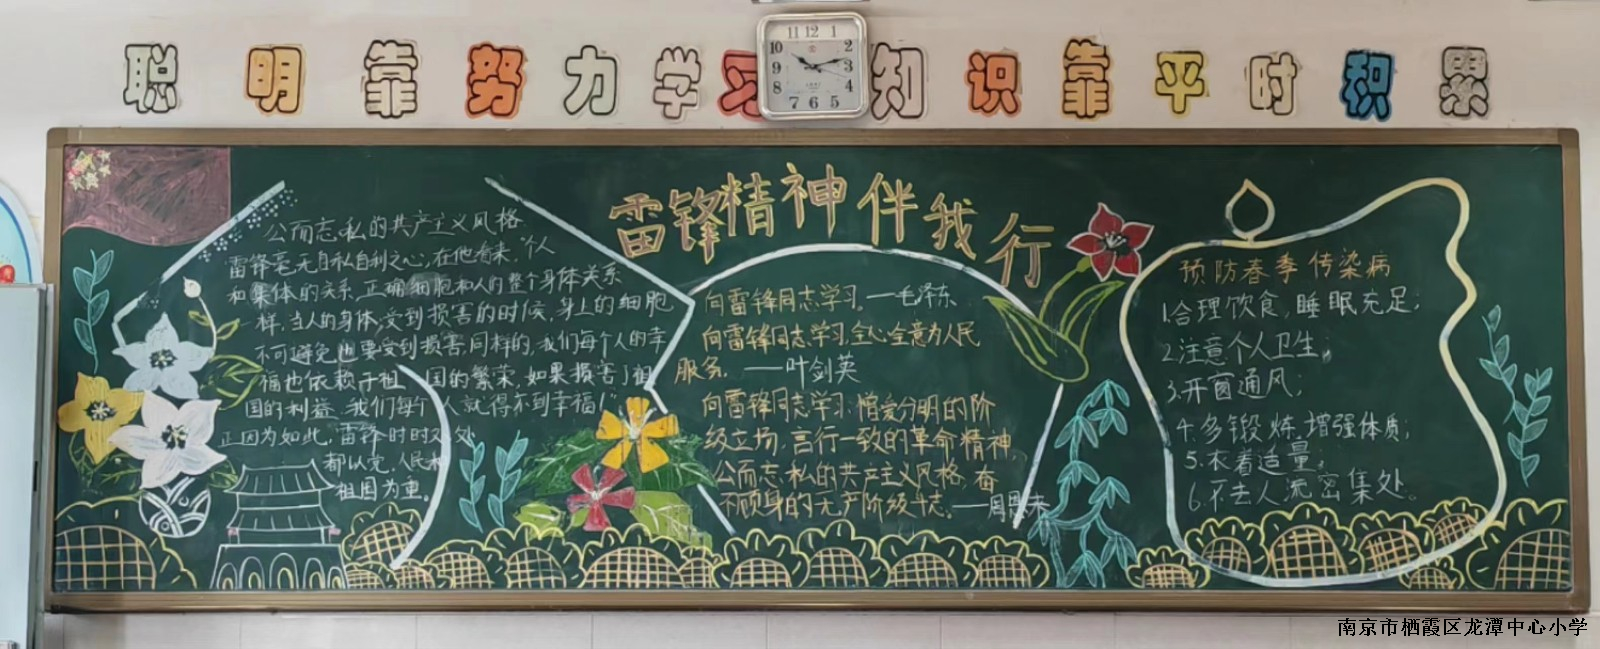 聪明靠努力学习知识靠平时积累
11 12 1
10 2
9 3
8 4
7 6 5
雷锋精神伴我行
公而忘私的共产主义风格
雷锋毫无自私自利之心,在他看来,个人
和集体的关系,正确细胞和人的整个身体关系
一样,当人的身体受到损害的时候,身上的细胞
不可避免也要受到损害,同样的,我们每个人的幸
福也依赖于祖国的繁荣,如果损害了祖
国的利益,我们每个人就得不到幸福!"
正因为如此,雷锋时时处处
都以党、人民和
祖国为重。
向雷锋同志学习。——毛泽东
向雷锋同志学习,全心全意为人民
服务。——叶剑英
向雷锋同志学习:憎爱分明的阶
级立场,言行一致的革命精神,
公而忘私的共产主义风格,奋
不顾身的无产阶级斗志。——周恩来
预防春季传染病
1.合理饮食,睡眠充足;
2.注意个人卫生;
3.开窗通风;
4.多锻炼,增强体质;
5.衣着适量;
6.不去人流密集处。
南京市栖霞区龙潭中心小学